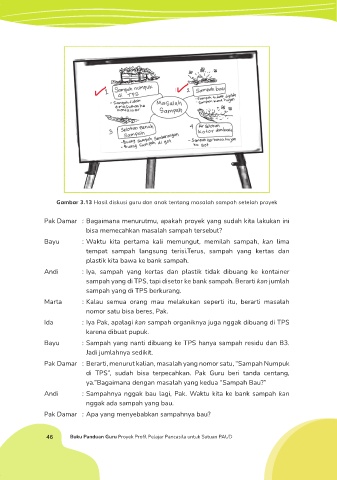 1. Sampah numpuk
di TPS
- Sampah tidak
dimasukkan ke
kontainer
2. Sampah bau
Masalah
Sampah
3. Selokan penuh
Sampah
- Buang sampah sembarangan
- Buang sampah di got
4. Air selokan
kotor
Gambar 3.13 Hasil diskusi guru dan anak tentang masalah sampah setelah proyek
Pak Damar : Bagaimana menurutmu, apakah proyek yang sudah kita lakukan ini
bisa memecahkan masalah sampah tersebut?
Bayu : Waktu kita pertama kali memungut, memilah sampah, kan lima
tempat sampah langsung terisi.Terus, sampah yang kertas dan
plastik kita bawa ke bank sampah.
Andi : Iya, sampah yang kertas dan plastik tidak dibuang ke kontainer
sampah yang di TPS, tapi disetor ke bank sampah. Berarti kan jumlah
sampah yang di TPS berkurang.
Marta : Kalau semua orang mau melakukan seperti itu, berarti masalah
nomor satu bisa beres, Pak.
Ida : Iya Pak, apalagi kan sampah organiknya juga nggak dibuang di TPS
karena dibuat pupuk.
Bayu : Sampah yang nanti dibuang ke TPS hanya sampah residu dan B3.
Jadi jumlahnya sedikit.
Pak Damar : Berarti, menurut kalian, masalah yang nomor satu, "Sampah Numpuk
di TPS", sudah bisa terpecahkan. Pak Guru beri tanda centang,
ya."Bagaimana dengan masalah yang kedua "Sampah Bau?"
Andi : Sampahnya nggak bau lagi, Pak. Waktu kita ke bank sampah kan
nggak ada sampah yang bau.
Pak Damar : Apa yang menyebabkan sampahnya bau?
46 Buku Panduan Guru Proyek Profil Pelajar Pancasila untuk Satuan PAUD